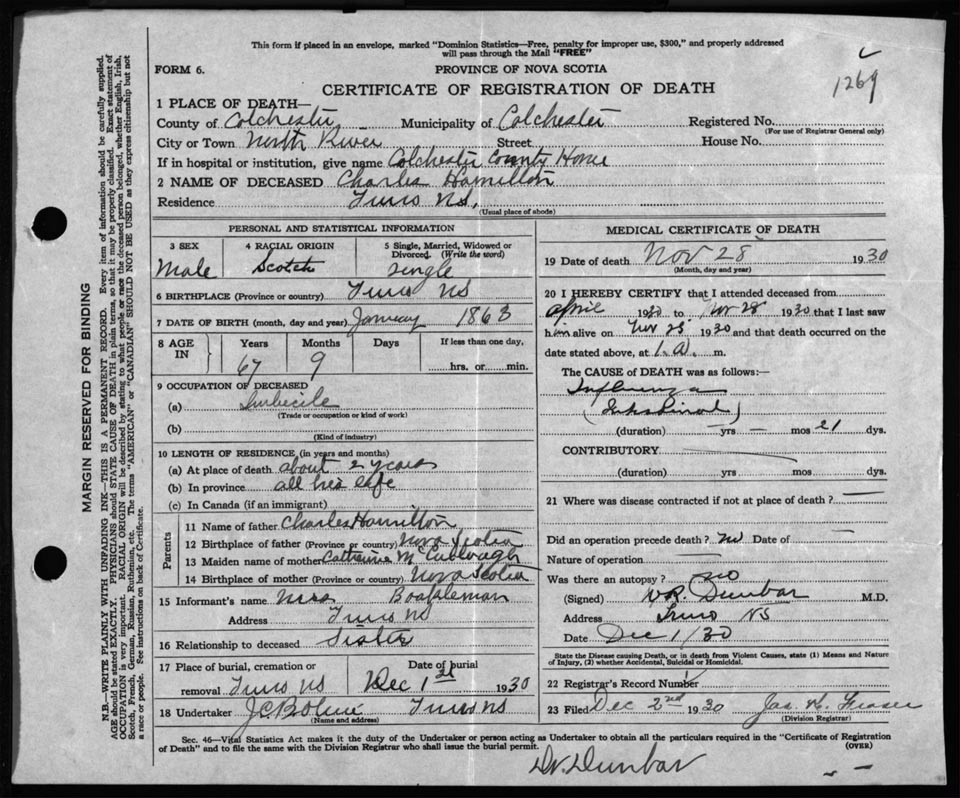 This form if placed in an envelope, marked "Dominion Statistics—Free, penalty for improper use, $300," and properly addressed
will pass through the Mail "FREE"
1269
FORM 6.
PROVINCE OF NOVA SCOTIA
CERTIFICATE OF REGISTRATION OF DEATH
1 PLACE OF DEATH—
County of Colchester Municipality of Colchester Registered No.
(For use of Registrar General only)
City or Town North River Street House No.
If in hospital or institution, give name Colchester County Home
2 NAME OF DECEASED Charles Hamilton
Residence Truro NS.
(Usual place of abode)
PERSONAL AND STATISTICAL INFORMATION
3 SEX
Male
4 RACIAL ORIGIN
Scotch
5 Single, Married, Widowed or
Divorced. (Write the word)
single
6 BIRTHPLACE (Province or country) Truro NS
7 DATE OF BIRTH (month, day and year) January 1863
8 AGE
IN
Years Months Days If less than one day,
67 9 hrs. or min.
9 OCCUPATION OF DECEASED
(a) Imbecile
(Trade or occupation or kind of work)
(b)
(Kind of industry)
10 LENGTH OF RESIDENCE (in years and months)
(a) At place of death about 2 years
(b) In province all his life
(c) In Canada (if an immigrant)
Parents
11 Name of father Charles Hamilton
12 Birthplace of father (Province or country) Nova Scotia
13 Maiden name of mother Catherine
14 Birthplace of mother (Province or country) Nova Scotia
15 Informant's name Mrs
Address Truro NS
16 Relationship to deceased Sister
17 Place of burial, cremation or
removal Truro NS
Date of burial
Dec 1st 1930
18 Undertaker Truro NS
(Name and address)
MEDICAL CERTIFICATE OF DEATH
19 Date of death Nov 28 1930
(Month, day and year)
20 I HEREBY CERTIFY that I attended deceased from
April 1930 to Nov 28 1930 that I last saw
him alive on Nov 25 1930 and that death occurred on the
date stated above, at 1.A. m.
The CAUSE of DEATH was as follows:—
Influenza
(Intestinal)
(duration) — yrs — mos 21 dys.
CONTRIBUTORY
(duration) yrs. mos. dys.
21 Where was disease contracted if not at place of death? —
Did an operation precede death? no Date of —
Nature of operation —
Was there an autopsy? no
(Signed) W.R. Dunbar M.D.
Address Truro NS
Date Dec 1/30
State the Disease causing Death, or in death from Violent Causes, state (1) Means and Nature
of Injury, (2) whether Accidental, Suicidal or Homicidal.
22 Registrar's Record Number
23 Filed Dec 2nd 1930 Jas. Fraser
(Division Registrar)
Sec. 46—Vital Statistics Act makes it the duty of the Undertaker or person acting as Undertaker to obtain all the particulars required in the "Certificate of Registration
of Death" and to file the same with the Division Registrar who shall issue the burial permit. (OVER)
Dr. Dunbar
MARGIN RESERVED FOR BINDING
N.B.—WRITE PLAINLY WITH UNFADING INK—THIS IS A PERMANENT RECORD. Every item of information should be carefully supplied.
AGE should be stated EXACTLY. PHYSICIANS should STATE CAUSE OF DEATH in plain terms, so that it may be properly classified. Exact statement of
OCCUPATION is very important. RACIAL ORIGIN will be described by stating to what people or race the deceased person belonged, whether English, Irish,
Scotch, French, German, Russian, Ruthenian, etc. The terms "AMERICAN" or "CANADIAN" SHOULD NOT BE USED as they express citizenship but not
a race or people. See instructions on back of Certificate.